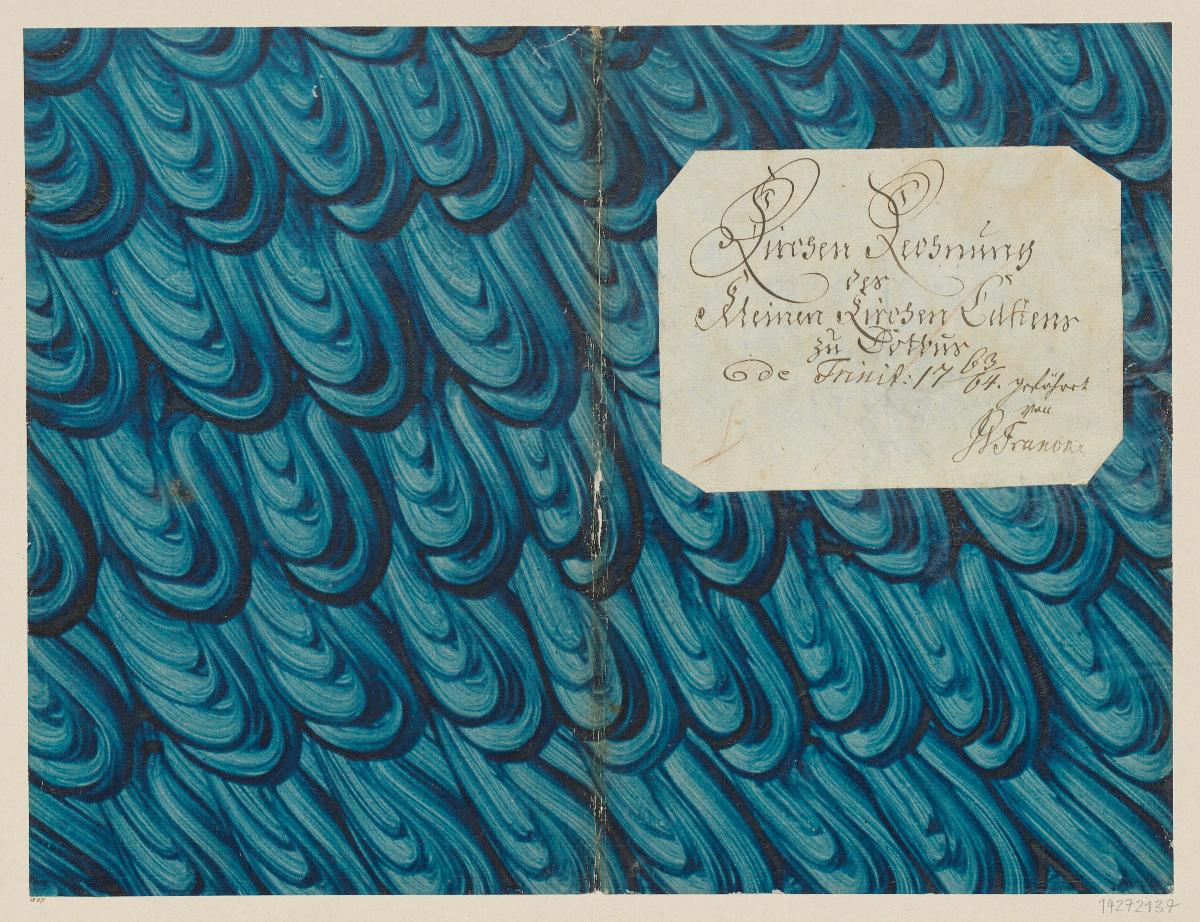 Kirchen Rechnung
des
Kleinen Kirchen Castens
zu Cotbus
de Trinit: 17 63/64. geführt
von
Francke
14272137